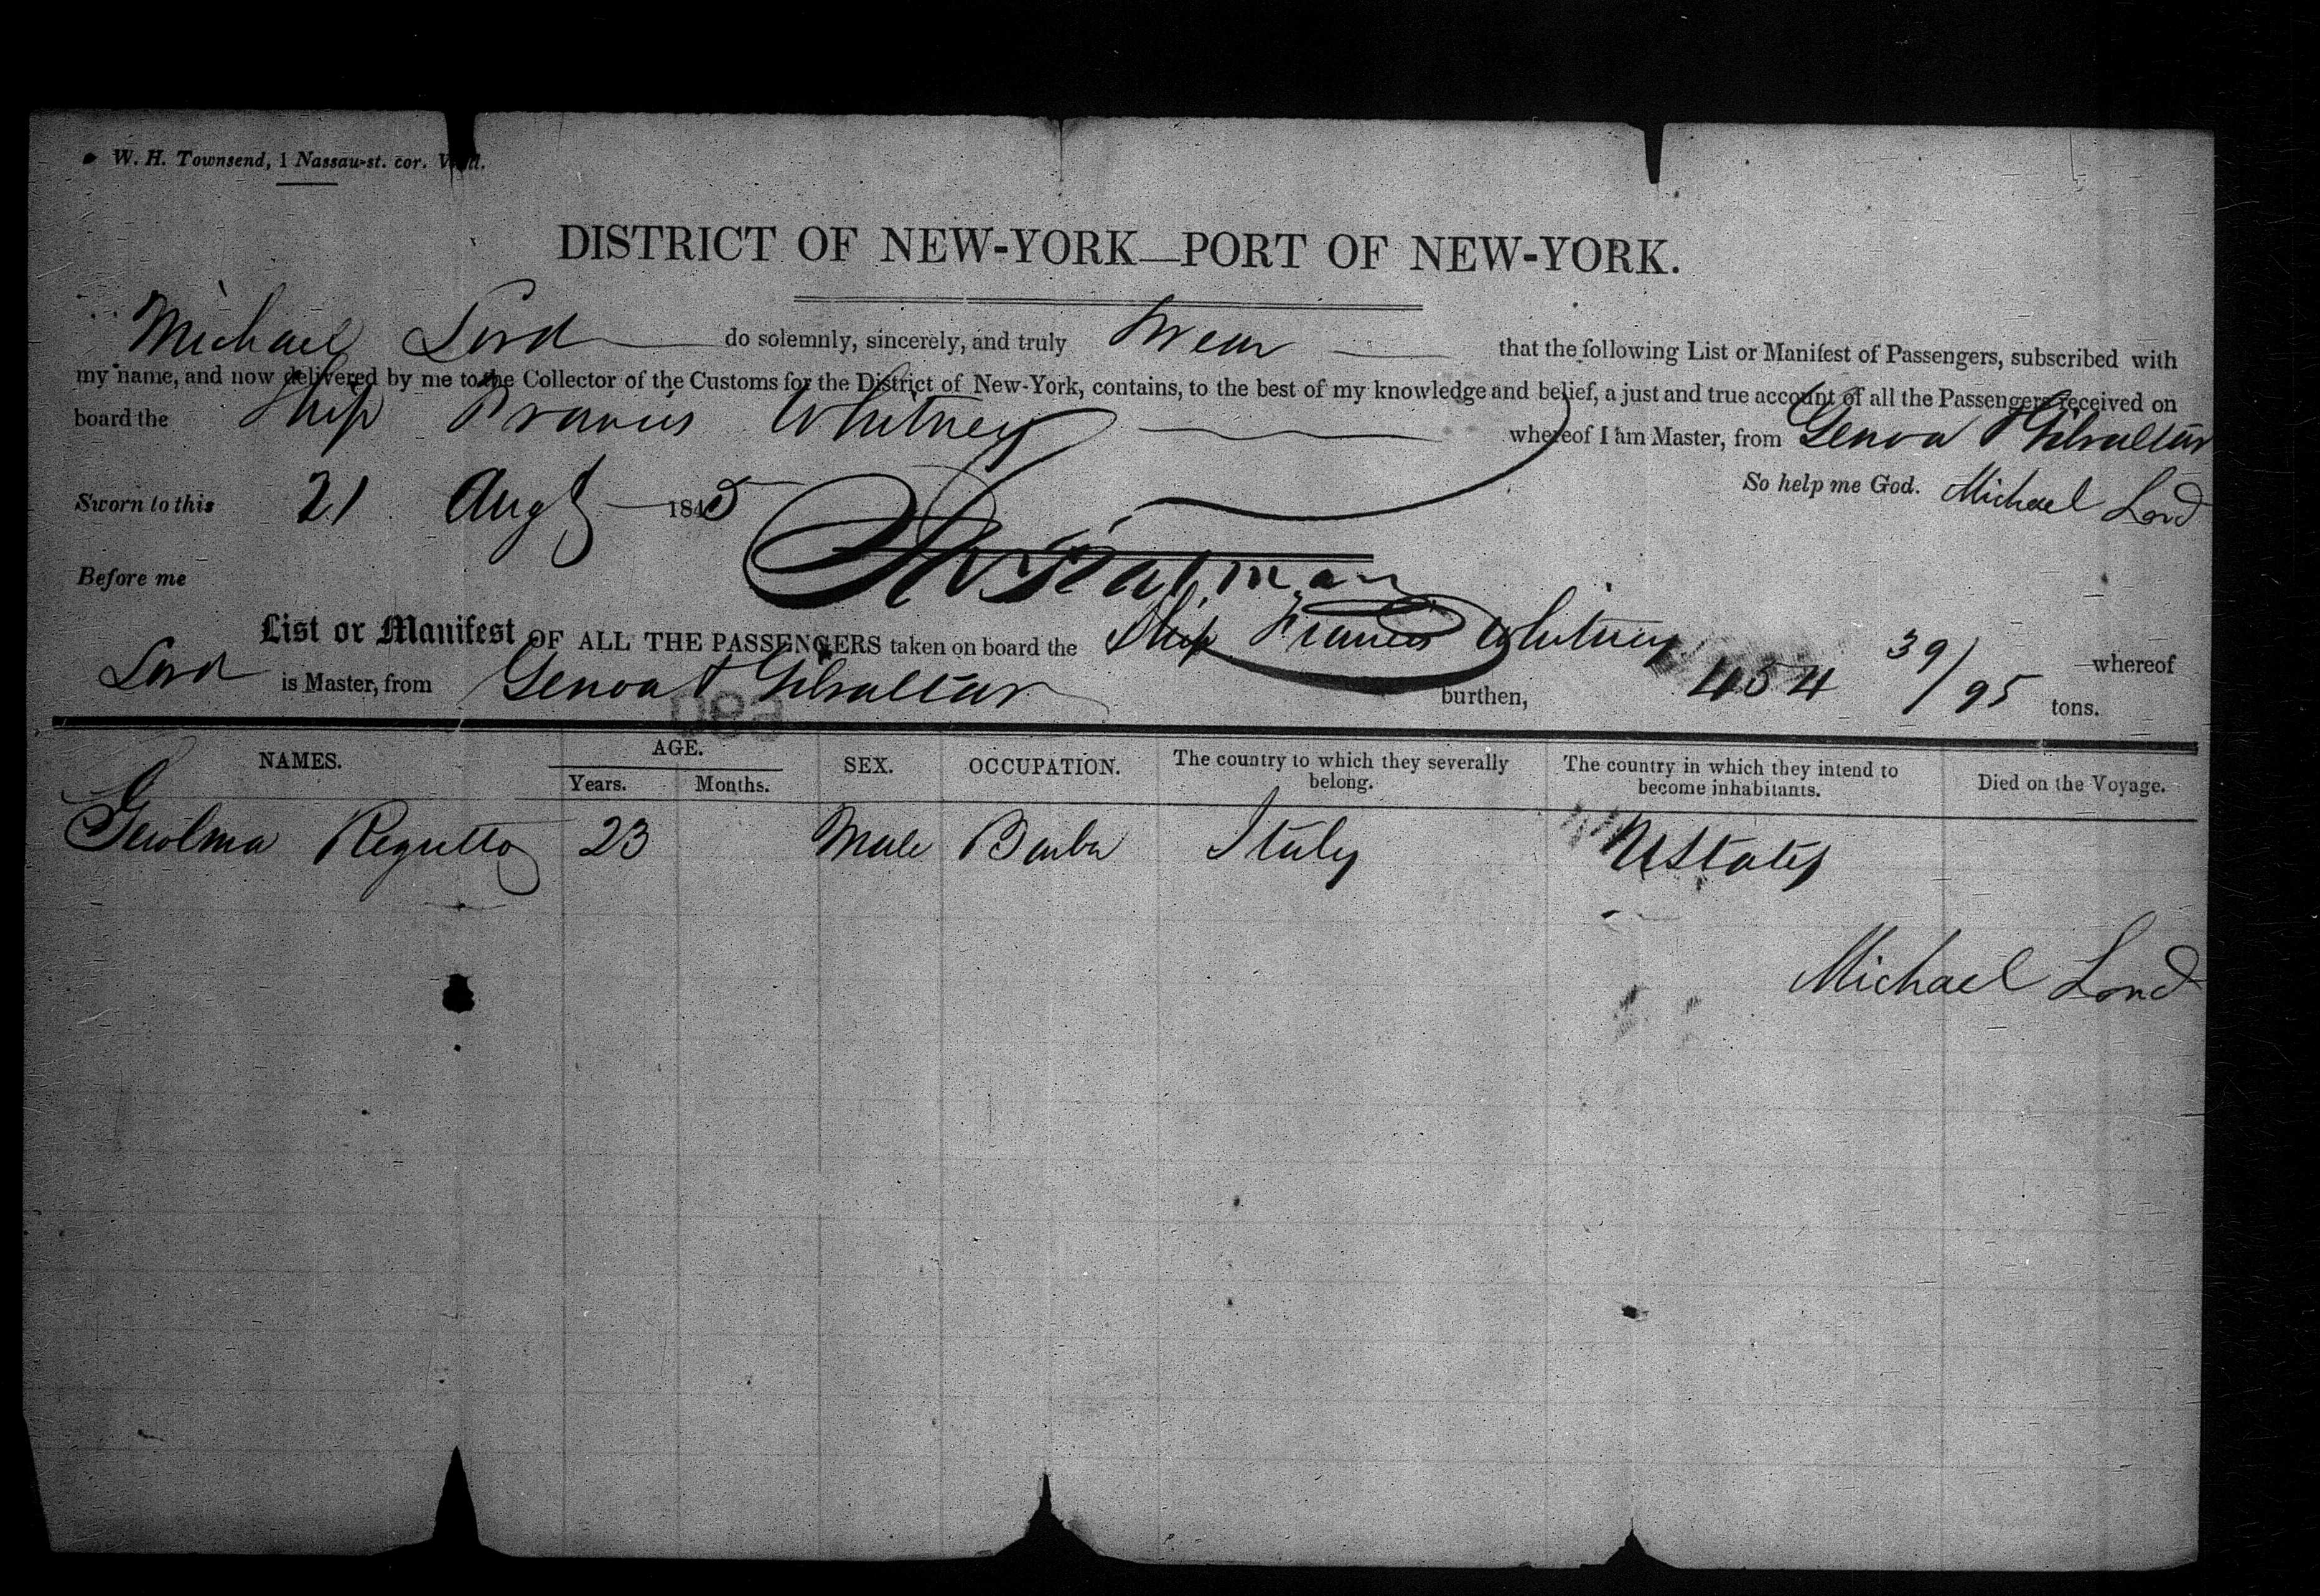 W. H. Townsend, 1 Nassau-st. cor. Wall.
DISTRICT OF NEW-YORK—PORT OF NEW-YORK.
Michael Lord do solemnly, sincerely, and truly swear that the following List or Manifest of Passengers, subscribed with
my name, and now delivered by me to the Collector of the Customs for the District of New-York, contains, to the best of my knowledge and belief, a just and true account of all the Passengers received on
board the Ship Francis Whitney whereof I am Master, from Genoa & Gibraltar
So help me God. Michael Lord
Sworn to this 21 Augt 1845
Before me
List or Manifest OF ALL THE PASSENGERS taken on board the Ship Francis Whitney whereof
Lord is Master, from Genoa & Gibraltar burthen, 454 39/95 tons.
NAMES. AGE. SEX. OCCUPATION. The country to which they severally belong. The country in which they intend to become inhabitants. Died on the Voyage.
Years. Months.
23 Male Barber Italy UStates
Michael Lord